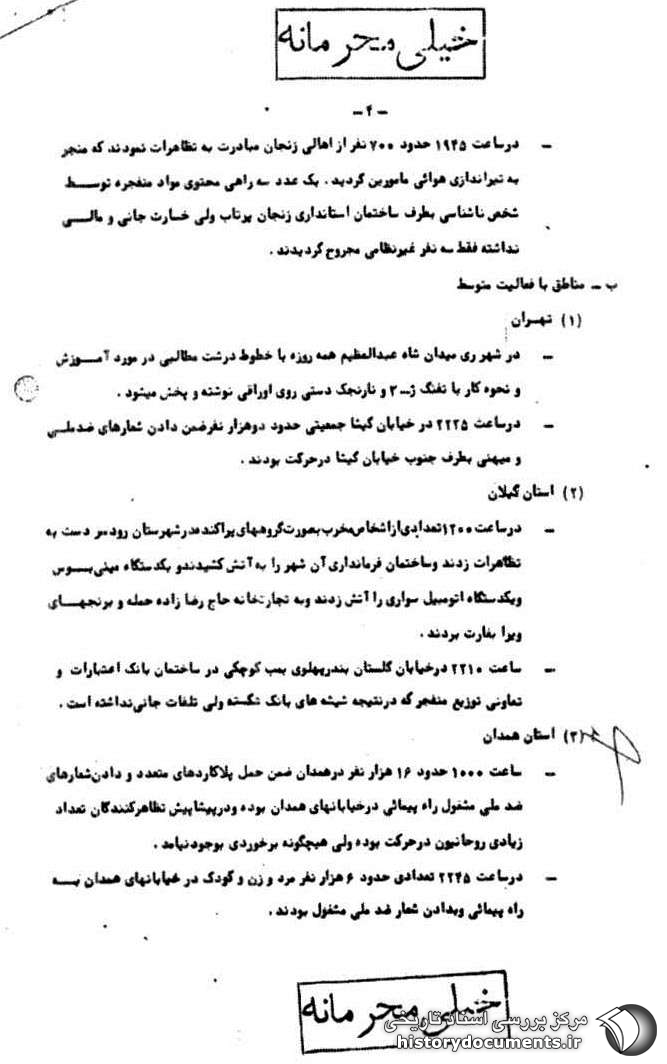 خیلی محرمانه
-۴-
- درساعت ۱۹۴۵ حدود ۷۰۰ نفر از اهالی زنجان مبادرت به تظاهرات نمودند که منجر
به تیراندازی هوائی مامورین گردید . یک عدد سه راهی محتوی مواد منفجره توسط
شخص ناشناسی بطرف ساختمان استانداری زنجان پرتاب ولی خسارت جانی و مالی
نداشته فقط سه نفر غیرنظامی مجروح گردیدند .
ب - مناطق با فعالیت متوسط
(۱) تهران
- در شهر ری میدان شاه عبدالعظیم همه روزه با خطوط درشت مطالبی در مورد آموزش
و نحوه کار با تفنگ ژ-۳ و نارنجک دستی روی اوراقی نوشته و پخش میشود .
- درساعت ۲۲۲۵ در خیابان گیشا جمعیتی حدود دوهزار نفرضمن دادن شعارهای ضدملی
و میهنی بطرف جنوب خیابان گیشا درحرکت بودند .
(۲) استان گیلان
- درساعت ۱۲۰۰ تعدادی از اشخاص مخرب بصورت گروههای پراکنده در شهرستان رودسر دست به
تظاهرات زدند وساختمان فرمانداری آن شهر را به آتش کشیدند و یکدستگاه مینی بوس
ویکدستگاه اتومبیل سواری را آتش زدند وبه تجارتخانه حاج رضا زاده حمله و برنجهای
ویرا بغارت بردند .
- ساعت ۲۲۱۰ درخیابان گلستان بندرپهلوی بمب کوچکی در ساختمان بانک اعتبارات و
تعاونی توزیع منفجر که درنتیجه شیشه های بانک شکسته ولی تلفات جانی نداشته است .
(۳) استان همدان
- ساعت ۱۰۰۰ حدود ۱۶ هزار نفر درهمدان ضمن حمل پلاکاردهای متعدد و دادن شعارهای
ضد ملی مشغول راه پیمائی درخیابانهای همدان بوده ودرپیشاپیش تظاهرکنندگان تعداد
زیادی روحانیون درحرکت بوده ولی هیچگونه برخوردی بوجود نیامد .
- درساعت ۲۲۴۵ تعدادی حدود ۶ هزار نفر مرد و زن و کودک در خیابانهای همدان به
راه پیمائی وبدادن شعار ضد ملی مشغول بودند .
خیلی محرمانه
مرکز بررسی اسناد تاریخی
historydocuments.ir